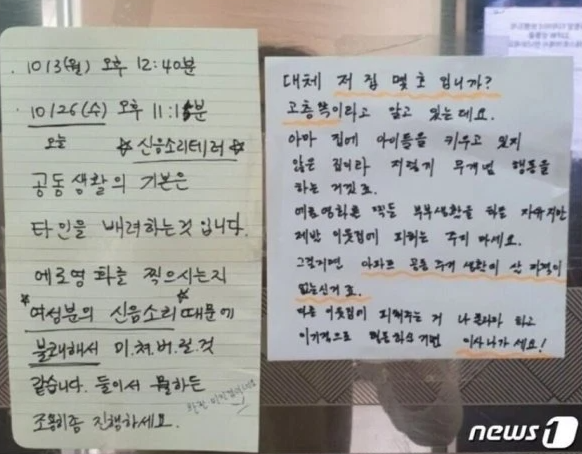 10/3(월) 오후 12:40분
10/26(수) 오후 11:15분
오늘
☆신음소리테러☆
공동생활의 기본은
타인을 배려하는것입니다.
에로영화를 찍으시는지
*여성분의 신음소리*때문에
불쾌해서 미쳐버릴것
같습니다. 둘이서 뭘하든
조용히좀 진행하세요.
대체 저 집 몇 호 입니까?
고층쪽이라고 알고 있는데요.
아마 집에 아이들을 키우고 있지
않은 집이라 저렇게 무개념 행동을
하는 거겠죠.
에로영화를 찍든 부부생활을 하든 자유지만
제발 이웃집에 피해는 주지 마세요.
그럴거면 아파트 공동 주거 생활이 산 자격이
없는신거죠.
다른 이웃집이 피해주는 거 나 몰라라 하고
이기적으로 행동하실거면 이사나가세요!
news1